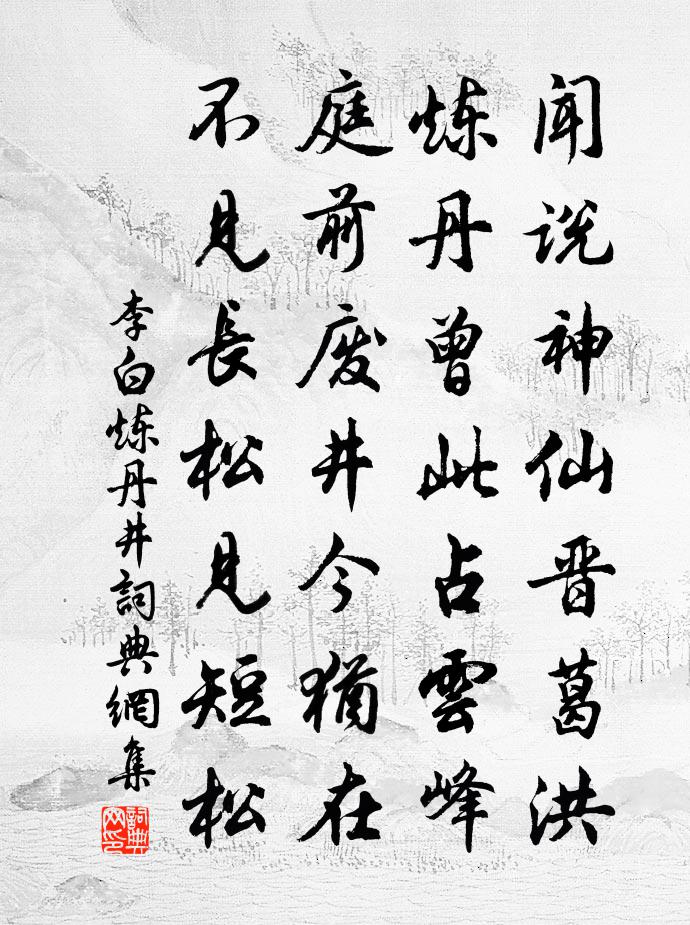 闻说神仙晋葛洪
炼丹曾此占雲峰
庭前废井今猶在
不见長松见短松
李白炼丹井詞典網集
詞典網印